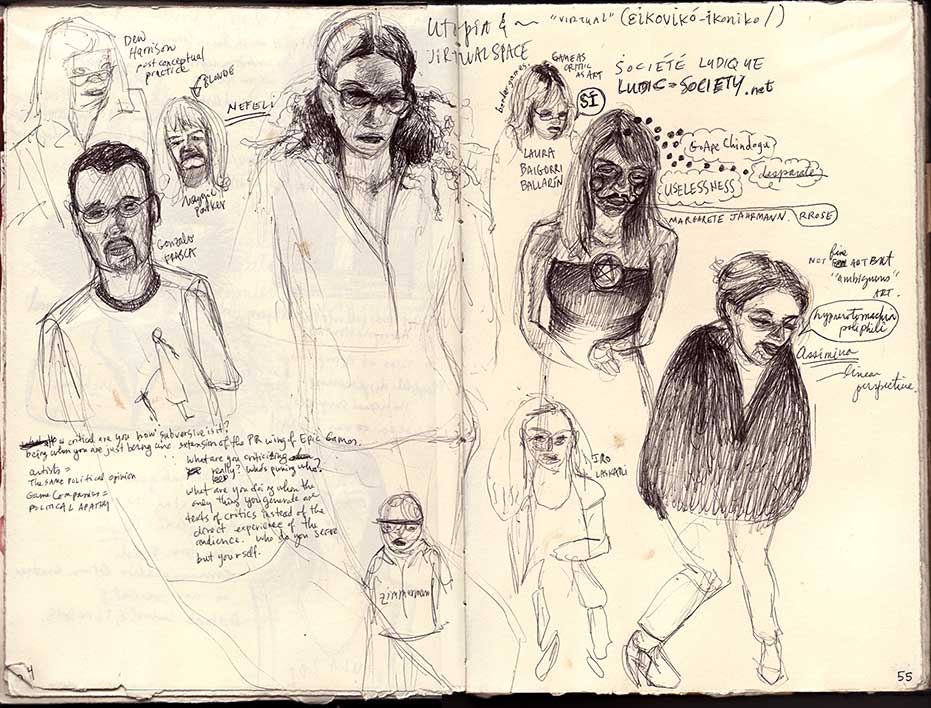 Dew
Harrison
post conceptual
practice
BLONDE
NEFELI
Maggie
Parker
Gonzalo
FRASCA
UTOPIA & "VIRTUAL" (εικονικό-ikoniko/)
VIRTUAL SPACE
bordergames.
GAME AS
CRITIC
AS ART
SÍ
SOCIÉTÉ LUDIQUE
LUDIC = SOCIETY.net
LAURA
BAIGORRI
BALLARÍN
GoApe Chindogu
desparate
USELESSNESS
MARGARETE JAHRMANN. RROSE
NOT fine ART BUT
"ambiguous"
ART.
hypnerotomachia
poliphili
Assimina
linear
perspective
IRO
LASKARI
How critical are you how subversive is it?
being when you are just being an extension of the PR wing of Epic Games.
artists =
The SAME political opinion
Game Companies =
POLITICAL APATHY
what are you criticizing
really? Who's pwning who?
what are you doing when the
only thing you generate are
texts of critics instead of the
direct experience of the
audience. Who do you serve
but yourself.
Zimmerman
4
55